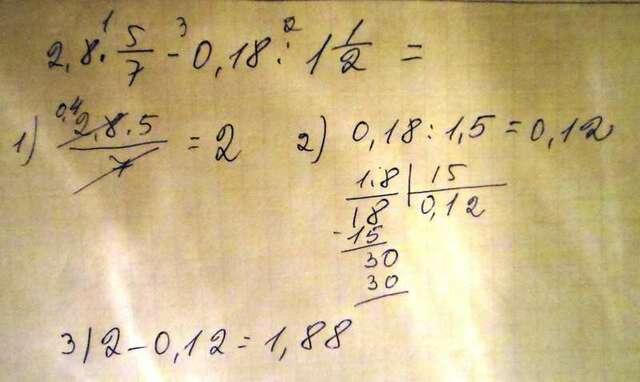 2,8 · 5/7 - 0,18 : 1 1/2 =
1 3 2
1) 2,8 · 5 / 7 = 2
0,4
2) 0,18 : 1,5 = 0,12
1,8 | 15
18 0,12
-15
30
30
3) 2 - 0,12 = 1,88